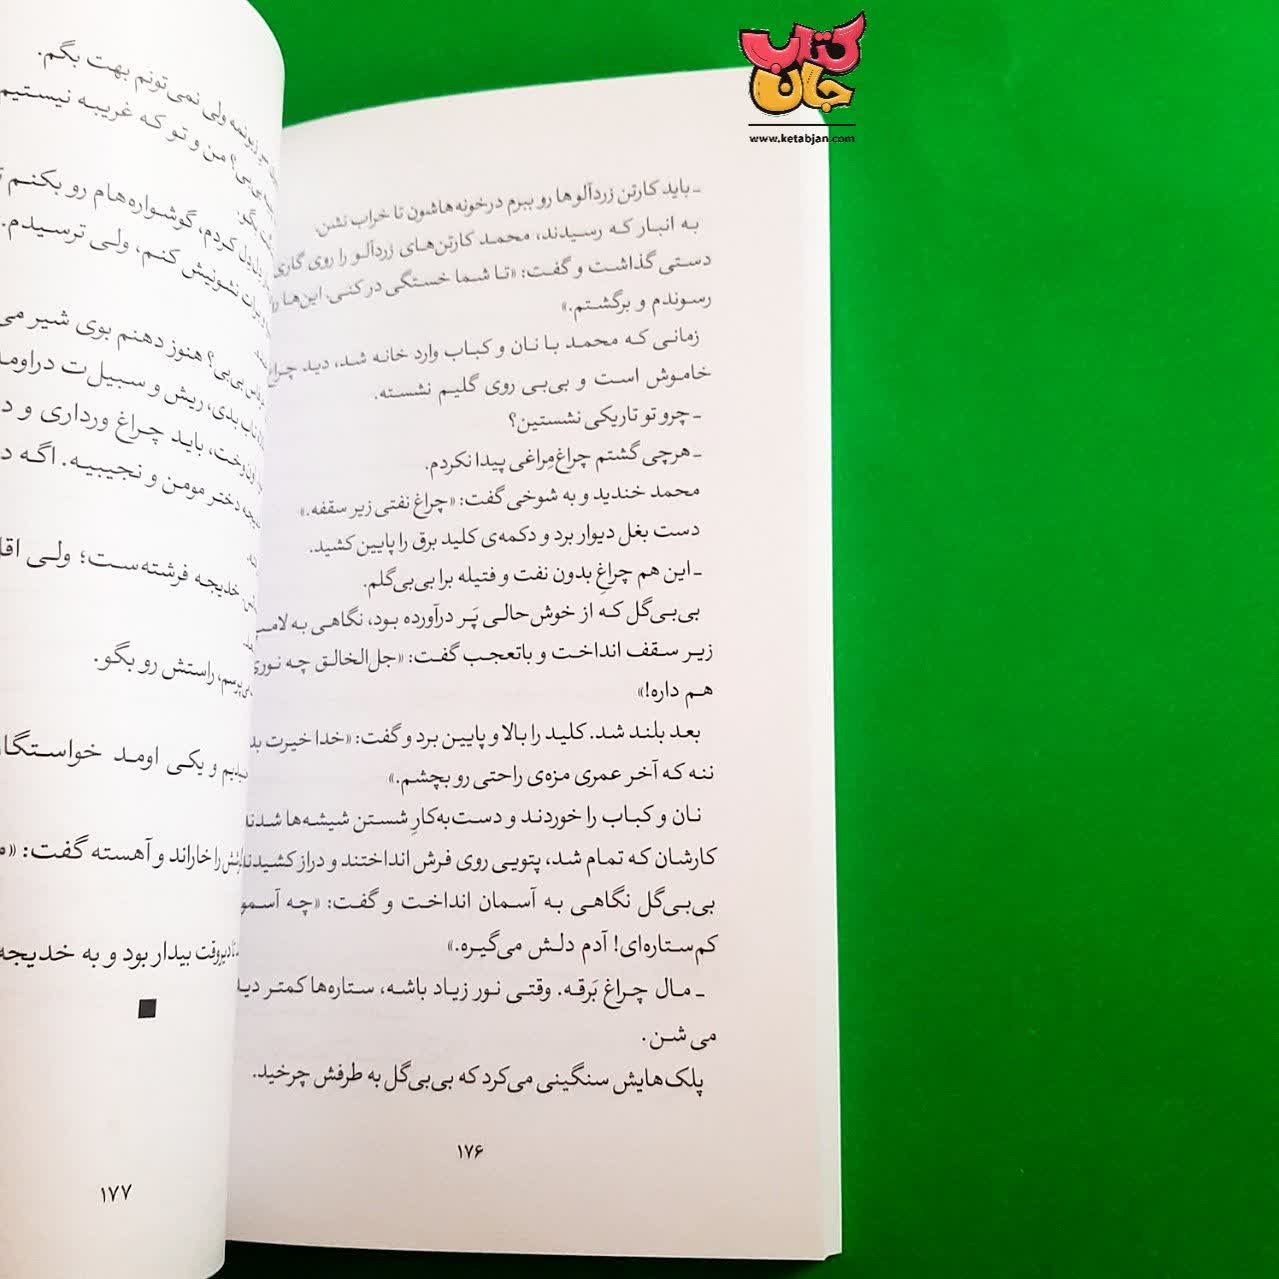 کتاب جان
www.ketabjan.com
ـ باید کارتن زردآلوها رو ببرم درخونه‌هاشون تا خراب نشن.
به انبار که رسیدند، محمد کارتن‌های زردآلو را روی گاری
دستی گذاشت و گفت: «تا شما خستگی در کنی. این‌ها را
رسوندم و برگشتم.»
زمانی که محمد با نان و کباب وارد خانه شد، دید چراغ
خاموش است و بی‌بی روی گلیم نشسته.
ـ چرو تو تاریکی نشستین؟
ـ هرچی گشتم چراغ‌مِراغی پیدا نکردم.
محمد خندید و به شوخی گفت: «چراغ نفتی زیر سقفه.»
دست بغل دیوار برد و دکمه‌ی کلید برق را پایین کشید.
ـ این هم چراغِ بدون نفت و فتیله برا بی‌بی‌گلم.
بی‌بی‌گل که از خوش‌حالی پَر درآورده بود، نگاهی به
زیر سقف انداخت و باتعجب گفت: «جل‌الخالق چه نوری
هم داره!»
بعد بلند شد. کلید را بالا و پایین برد و گفت: «خدا خیرت
ننه که آخر عمری مزه‌ی راحتی رو بچشم.»
نان و کباب را خوردند و دست‌به‌کارِ شستن شیشه‌ها شدند
کارشان که تمام شد، پتویی روی فرش انداختند و دراز کشیدند
بی‌بی‌گل نگاهی به آسمان انداخت و گفت: «چه
کم‌ستاره‌ای! آدم دلش می‌گیره.»
ـ مال چراغ بَرقه. وقتی نور زیاد باشه، ستاره‌ها کمتر
می شن.
پلک‌هایش سنگینی می‌کرد که بی‌بی‌گل به طرفش چرخید.
۱۷۶
ولی نمی‌تونم بهت بگم.
من و تو که غریبه نیستیم
کردم، گوشواره‌هام رو بکنم
نشونیش کنم، ولی ترسیدم.
بی‌بی؟ هنوز دهنم بوی شیر
تاب بدی، ریش و سبیل‌ت
باید چراغ ورداری و
دختر مومن و نجیبیه. اگه
خدیجه فرشته‌ست؛ ولی
راستش رو بگو.
و یکی اومد
را خاراند و آهسته گفت:
بیدار بود و به خدیجه
۱۷۷